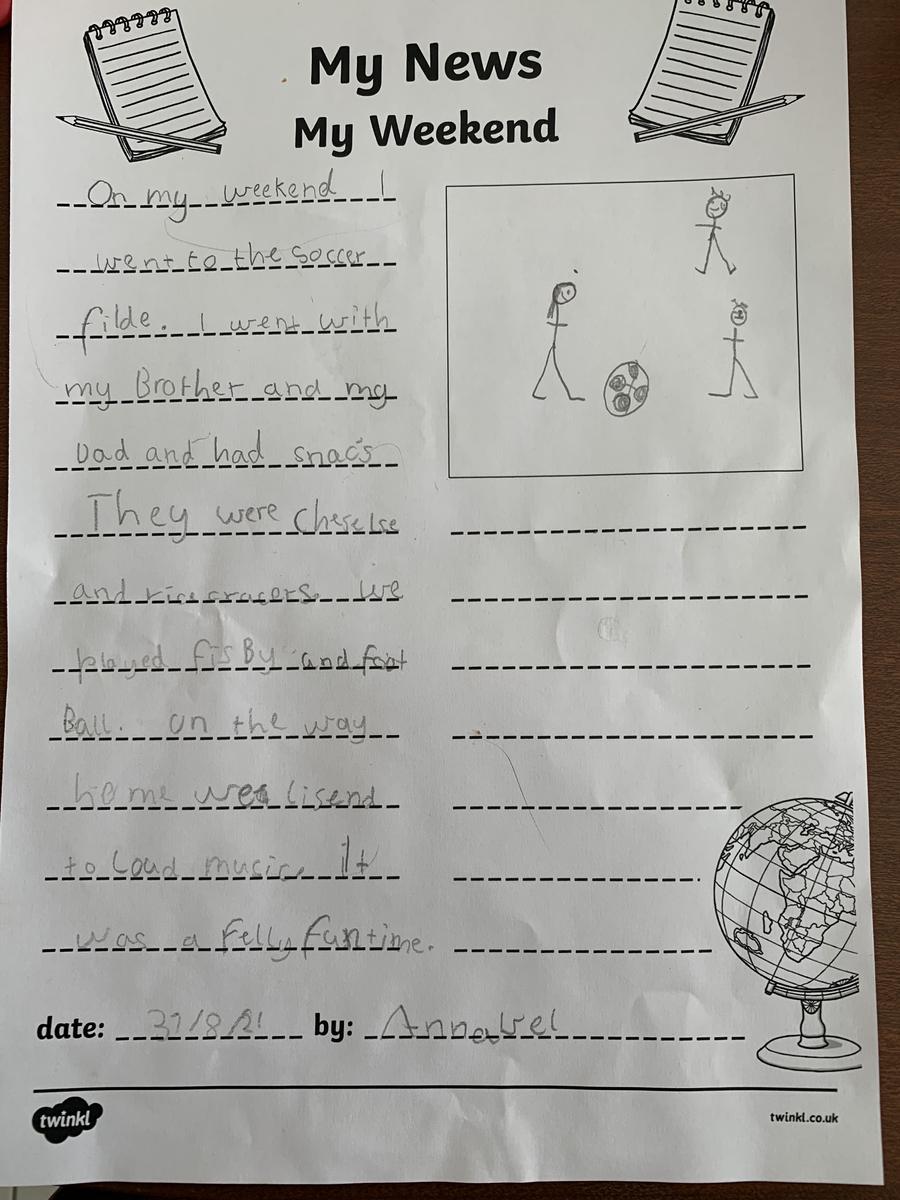 My News
My Weekend
On my weekend I
went to the soccer
filde. I went with
my Brother and my
Dad and had snacs
They were
and rice cracers. we
played fisBy and foot
Ball. on the way
home we lisend
to Loud music. It
was a felly fun time.
date: 31/8/21 by: Annabel
twinkl
twinkl.co.uk